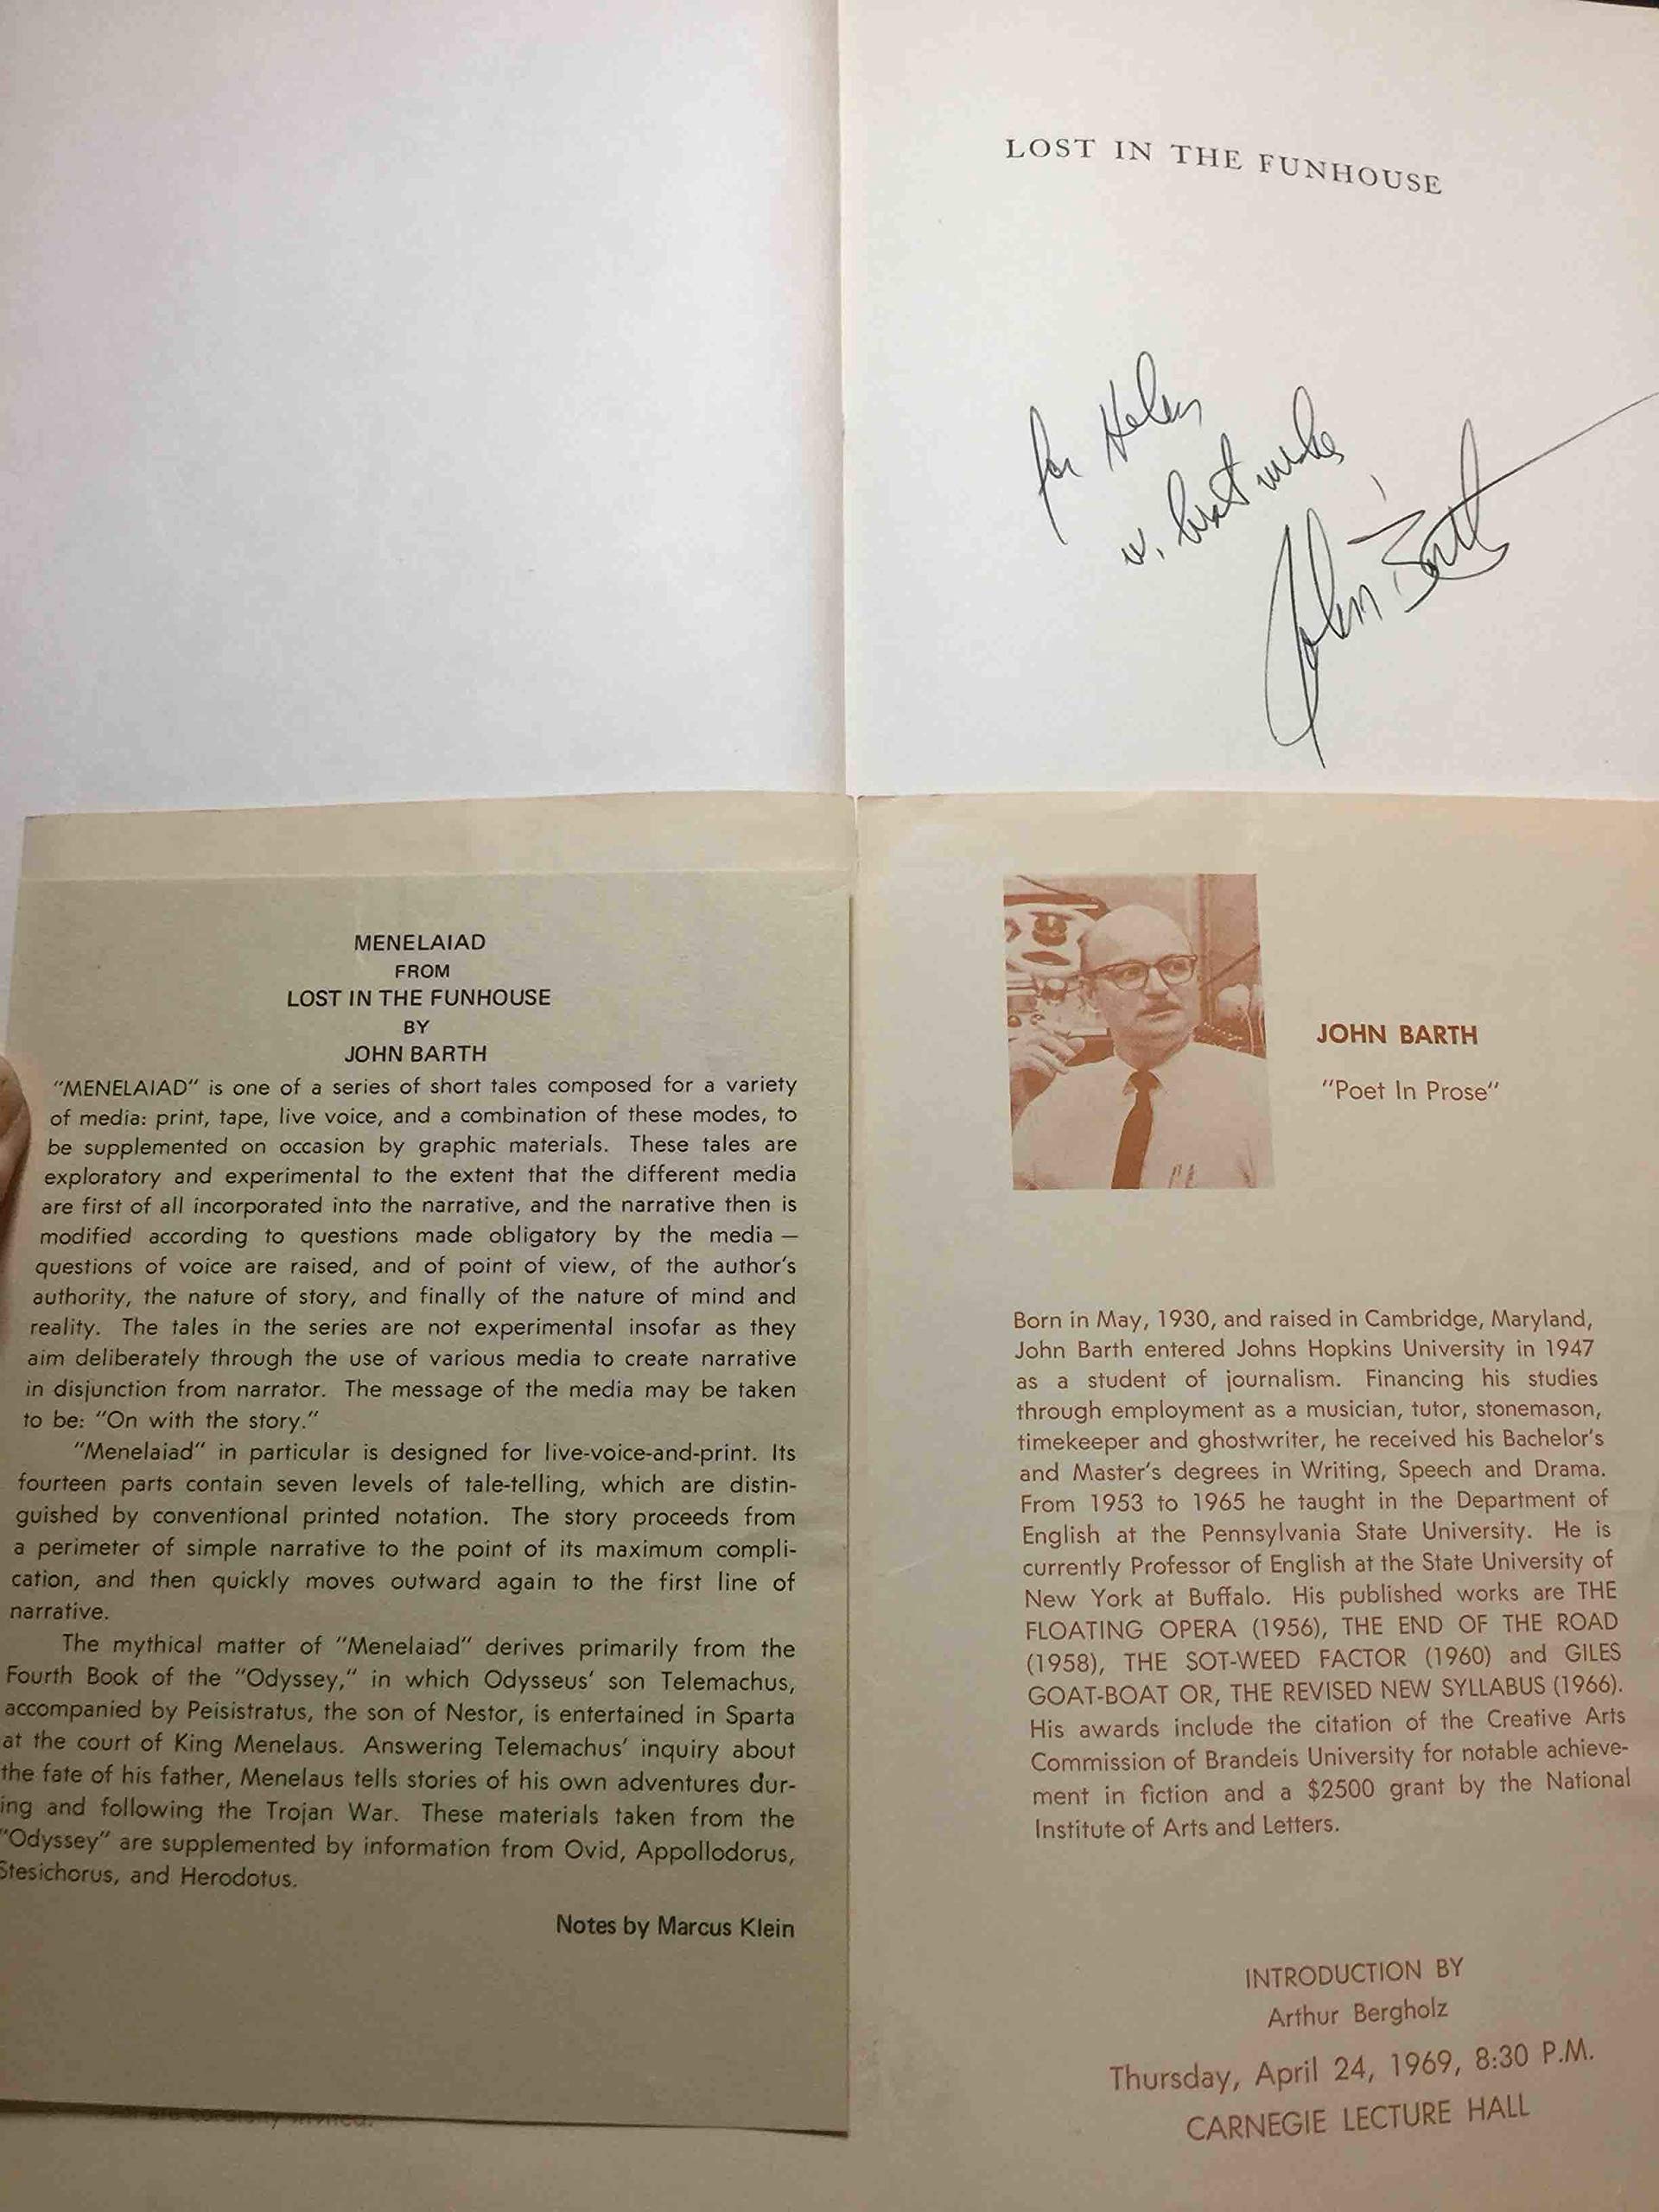 LOST IN THE FUNHOUSE
for Helen
w. best wishes
John Barth
MENELAIAD
FROM
LOST IN THE FUNHOUSE
BY
JOHN BARTH
"MENELAIAD" is one of a series of short tales composed for a variety
of media: print, tape, live voice, and a combination of these modes, to
be supplemented on occasion by graphic materials. These tales are
exploratory and experimental to the extent that the different media
are first of all incorporated into the narrative, and the narrative then is
modified according to questions made obligatory by the media —
questions of voice are raised, and of point of view, of the author's
authority, the nature of story, and finally of the nature of mind and
reality. The tales in the series are not experimental insofar as they
aim deliberately through the use of various media to create narrative
in disjunction from narrator. The message of the media may be taken
to be: "On with the story."
"Menelaiad" in particular is designed for live-voice-and-print. Its
fourteen parts contain seven levels of tale-telling, which are distin-
guished by conventional printed notation. The story proceeds from
a perimeter of simple narrative to the point of its maximum compli-
cation, and then quickly moves outward again to the first line of
narrative.
The mythical matter of "Menelaiad" derives primarily from the
Fourth Book of the "Odyssey," in which Odysseus' son Telemachus,
accompanied by Peisistratus, the son of Nestor, is entertained in Sparta
at the court of King Menelaus. Answering Telemachus' inquiry about
the fate of his father, Menelaus tells stories of his own adventures dur-
ing and following the Trojan War. These materials taken from the
"Odyssey" are supplemented by information from Ovid, Appollodorus,
Stesichorus, and Herodotus.
Notes by Marcus Klein
cordially invited.
JOHN BARTH
"Poet In Prose"
Born in May, 1930, and raised in Cambridge, Maryland,
John Barth entered Johns Hopkins University in 1947
as a student of journalism. Financing his studies
through employment as a musician, tutor, stonemason,
timekeeper and ghostwriter, he received his Bachelor's
and Master's degrees in Writing, Speech and Drama.
From 1953 to 1965 he taught in the Department of
English at the Pennsylvania State University. He is
currently Professor of English at the State University of
New York at Buffalo. His published works are THE
FLOATING OPERA (1956), THE END OF THE ROAD
(1958), THE SOT-WEED FACTOR (1960) and GILES
GOAT-BOAT OR, THE REVISED NEW SYLLABUS (1966).
His awards include the citation of the Creative Arts
Commission of Brandeis University for notable achieve-
ment in fiction and a $2500 grant by the National
Institute of Arts and Letters.
INTRODUCTION BY
Arthur Bergholz
Thursday, April 24, 1969, 8:30 P.M.
CARNEGIE LECTURE HALL